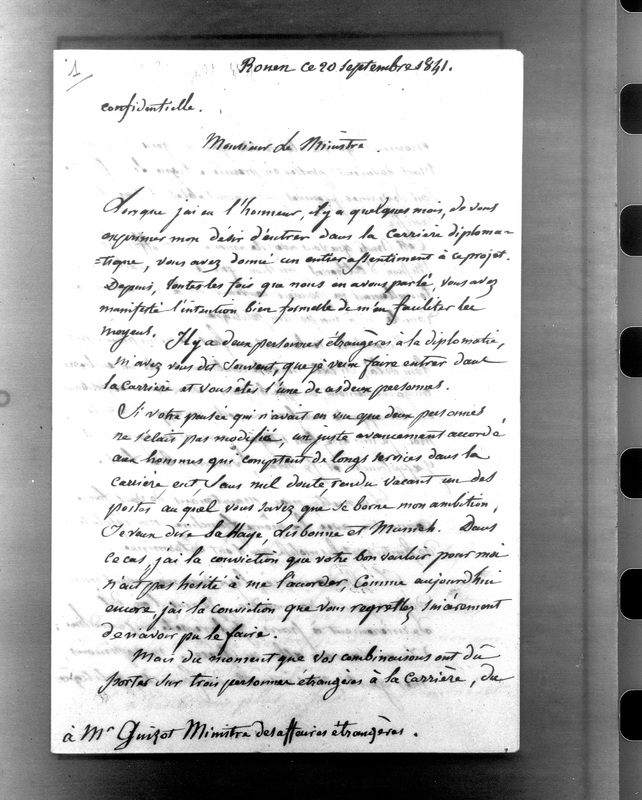 1
Rouen ce 20 Septembre 1841.
confidentielle.
Monsieur Le Ministre.
Lorsque j'ai eu l'honneur, il y a quelques mois, de vous
exprimer mon désir d'entrer dans la carrière diploma-
=tique, vous avez donné un entier assentiment à ce projet.
Depuis, toutes les fois que nous en avons parlé, vous avez
manifesté l'intention bien formelle de m'en faciliter les
moyens. Il y a deux personnes étrangères à la diplomatie,
m'avez vous dit souvent, que je veux faire entrer dans
la carrière et vous êtes l'une de ces deux personnes.
Si votre pensée qui n'avait en vue que deux personnes
ne s'était pas modifiée, un juste avancement accordé
aux hommes qui comptent de longs services dans la
carrière, eut, sans nul doute, rendu vacant un des
postes auquel vous savez que se borne mon ambition,
Je veux dire La Haye, Lisbonne et Munich. Dans
ce cas, j'ai la conviction que votre bon vouloir pour moi
n'eut pas hésité à me l'accorder, comme aujourdhui
encore j'ai la conviction que vous regrettez sincèrement
de n'avoir pu le faire.
Mais du moment que vos combinaisons ont dû
porter sur trois personnes étrangères à la carrière, du
à Mr Guizot Ministre des affaires étrangères.